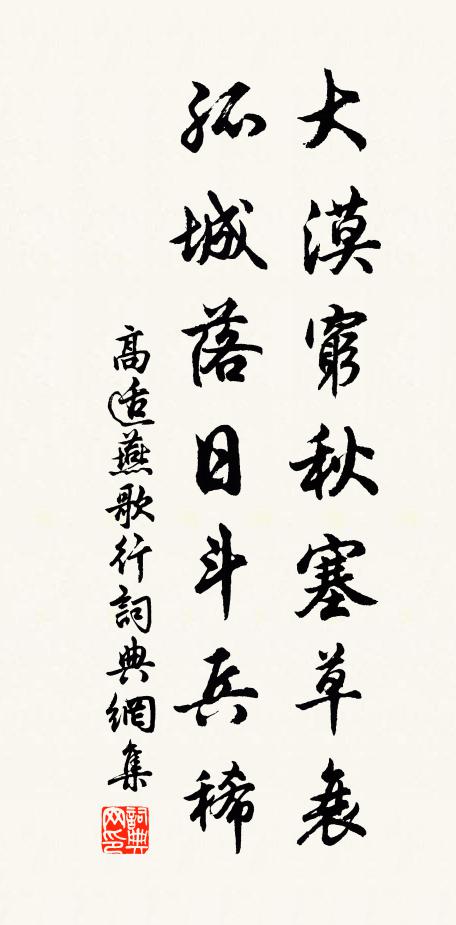 大漠窮秋塞草衰
孤城落日斗兵稀
高适燕歌行詞典網集
詞典网印